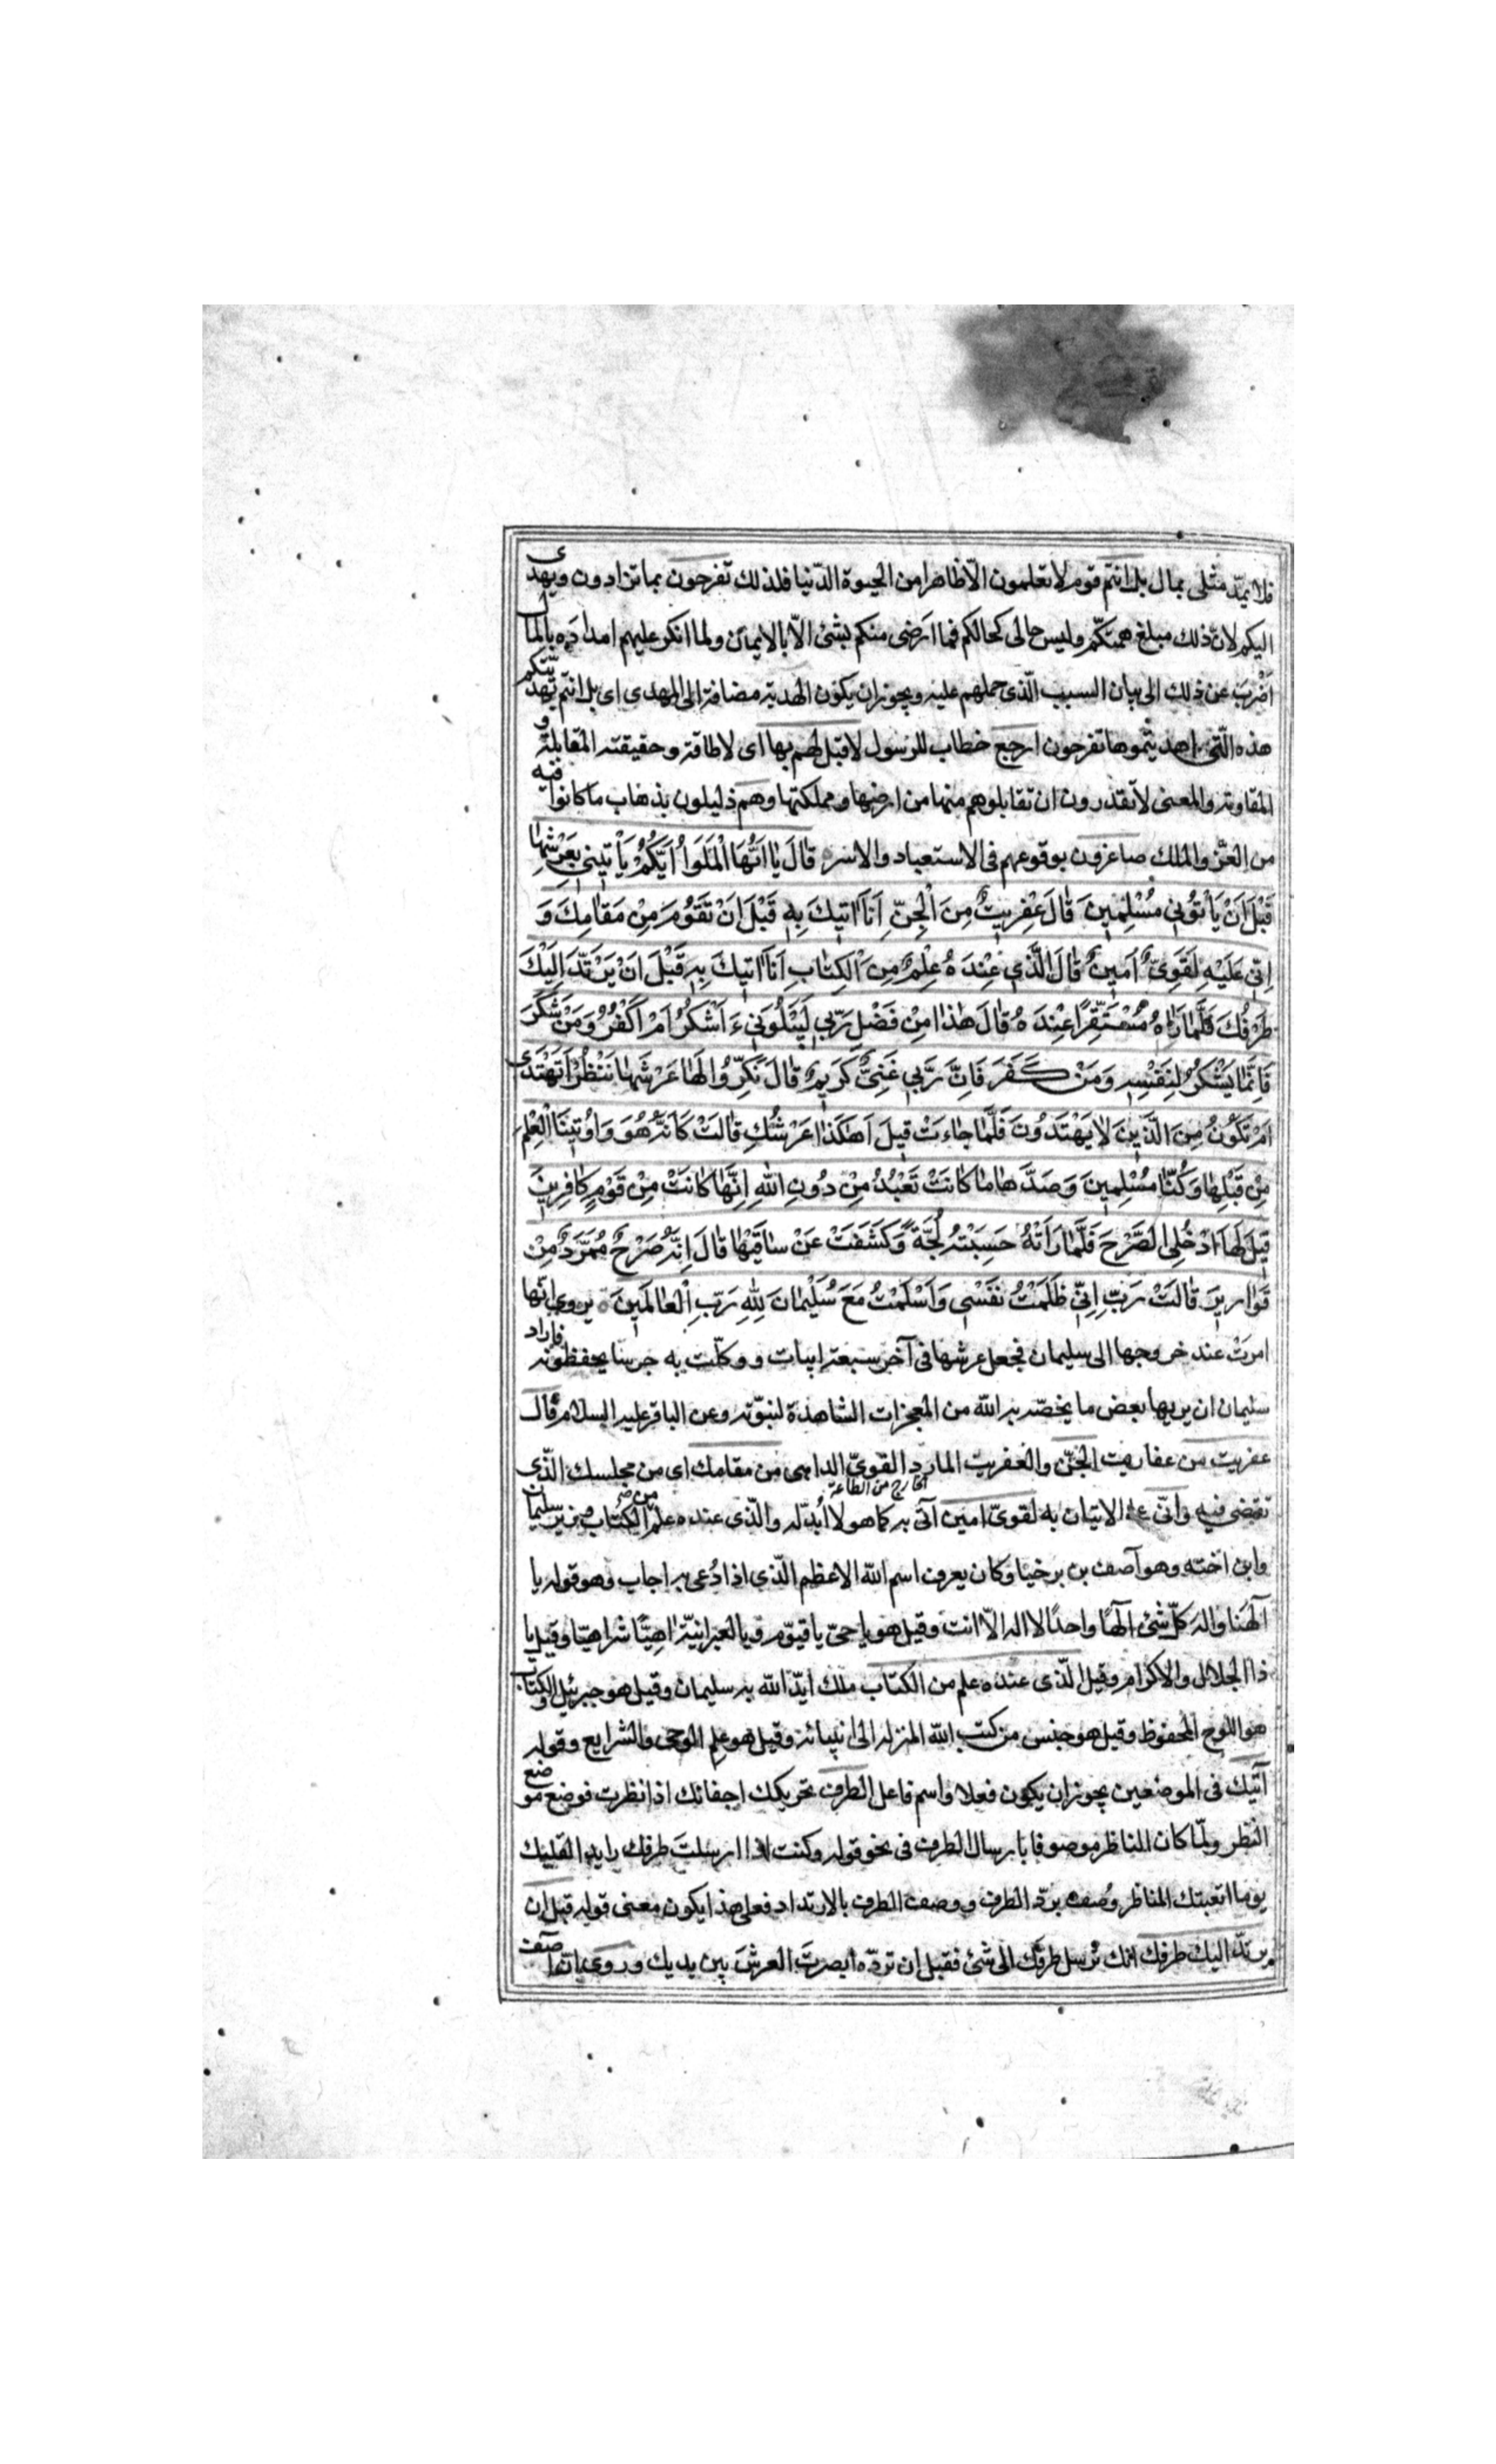 فلا يمدّ مثلى بمال بل انتم قوم لا تعلمون الّا ظاهرا من الحيوة الدّنيا فلذلك تفرحون بما تزادون ويهدى
اليكم لانّ ذلك مبلغ همتكّم وليس حالى كحالكم فما ارضى منكم بشئ الّا بالايمان ولما انكر عليهم امداده بالمال
اضرب عن ذلك الى بيان السبب الّذى حملهم عليه ويجوز ان يكون الهدية مضافة الى المهدى اى بل انتم بهديّتكم
هذه الّتى اهديتموها تفرحون ارجع خطاب للرسول لا قبل لهم بها اى لا طاقة وحقيقته المقابلة و
المقاومة والمعنى لا تقدرون ان تقابلوهم منها من ارضها ومملكتها وهم ذليلون بذهاب ما كانوا فيه
من العزّ والملك صاغرون بوقوعهم فى الاستعباد والاسر ه قَالَ يَا اَيُّهَا الْمَلَوُا اَيُّكُمْ يَأْتِينِي بِعَرْشِهَا
قَبْلَ اَنْ يَأْتُونِي مُسْلِمِينَ قَالَ عِفْرِيتٌ مِنَ الْجِنِّ اَنَا اتِيكَ بِهِ قَبْلَ اَنْ تَقُومَ مِنْ مَقَامِكَ وَ
اِنِّي عَلَيْهِ لَقَوِيٌّ اَمِينٌ قَالَ الَّذِي عِنْدَهُ عِلْمٌ مِنَ الْكِتَابِ اَنَا اتِيكَ بِهِ قَبْلَ اَنْ يَرْتَدَّ اِلَيْكَ
طَرْفُكَ فَلَمَّا رَاهُ مُسْتَقِرًّا عِنْدَهُ قَالَ هٰذَا مِنْ فَضْلِ رَبِّي لِيَبْلُوَنِي ءَاَشْكُرُ اَمْ اَكْفُرُ وَمَنْ شَكَرَ
فَاِنَّمَا يَشْكُرُ لِنَفْسِهِ وَمَنْ كَفَرَ فَاِنَّ رَبِّي غَنِيٌّ كَرِيمٌ قَالَ نَكِّرُوا لَهَا عَرْشَهَا نَنْظُرْ اَتَهْتَدِي
اَمْ تَكُونُ مِنَ الَّذِينَ لَا يَهْتَدُونَ فَلَمَّا جَاءَتْ قِيلَ اَهٰكَذَا عَرْشُكِ قَالَتْ كَاَنَّهُ هُوَ وَاُوتِينَا الْعِلْمَ
مِنْ قَبْلِهَا وَكُنَّا مُسْلِمِينَ وَصَدَّهَا مَا كَانَتْ تَعْبُدُ مِنْ دُونِ اللهِ اِنَّهَا كَانَتْ مِنْ قَوْمٍ كَافِرِينَ
قِيلَ لَهَا ادْخُلِي الصَّرْحَ فَلَمَّا رَاَتْهُ حَسِبَتْهُ لُجَّةً وَكَشَفَتْ عَنْ سَاقَيْهَا قَالَ اِنَّهُ صَرْحٌ مُمَرَّدٌ مِنْ
قَوَارِيرَ قَالَتْ رَبِّ اِنِّي ظَلَمْتُ نَفْسِي وَاَسْلَمْتُ مَعَ سُلَيْمَانَ لِلّٰهِ رَبِّ الْعَالَمِينَ ه يروى انّها
امرت عند خروجها الى سليمان فجعل عرشها فى آخر سبعة ابيات ووكلّت به حرسا يحفظونه فاراد
سليمان ان يريها بعض ما يخصّه به الله من المعجزات الشاهدة لنبوّته وعن الباقر عليه السلام قال
عفريت من عفاريت الجنّ والعفريت المارد القوىّ الداهى من مقامك اى من مجلسك الّذى
الخارج من الطاعة
تقضى فيه وانّى على الاتيان به لقوىّ امين آتى به كما هو لا اُبدّله والّذى عنده علم من الكتاب وزير سليمان
وابن اخته وهو آصف بن برخيا وكان يعرف اسم الله الاعظم الّذى اذا دُعى به اجاب وهو قوله يا
آلهنا واله كلّ شئ الٰها واحدًا لا اله الّا انت وقيل هو يا حىّ يا قيّوم وبالعبرانيّة اهيًّا شراهيّا وقيل يا
ذا الجلال والاكرام وقيل الّذى عنده علم من الكتاب ملك ايّد الله به سليمان وقيل هو جبرئيل والكتاب
هو اللوح المحفوظ وقيل هو جنس من كتب الله المنزلة الى انبيائه وقيل هو علم الوحى والشرايع وقوله
آتيك فى الموضعين يجوز ان يكون فعلا واسم فاعل الطرف تحريكك اجفانك اذا نظرت فوضع موضع
النظر ولمّا كان الناظر موصوفا بارسال الطرف فى نحو قوله وكنت اذا ارسلت طرفك رايدا لقلبك
يوما اتعبتك المناظر وُصف بردّ الطرف ووصف الطرف بالارتداد فعلى هذا يكون معنى قوله قبل ان
يرتدّ اليك طرفك انك تُرسل طرفك الى شئ فقبل ان تردّه ابصرت العرش بين يديك وروى انّ آصف